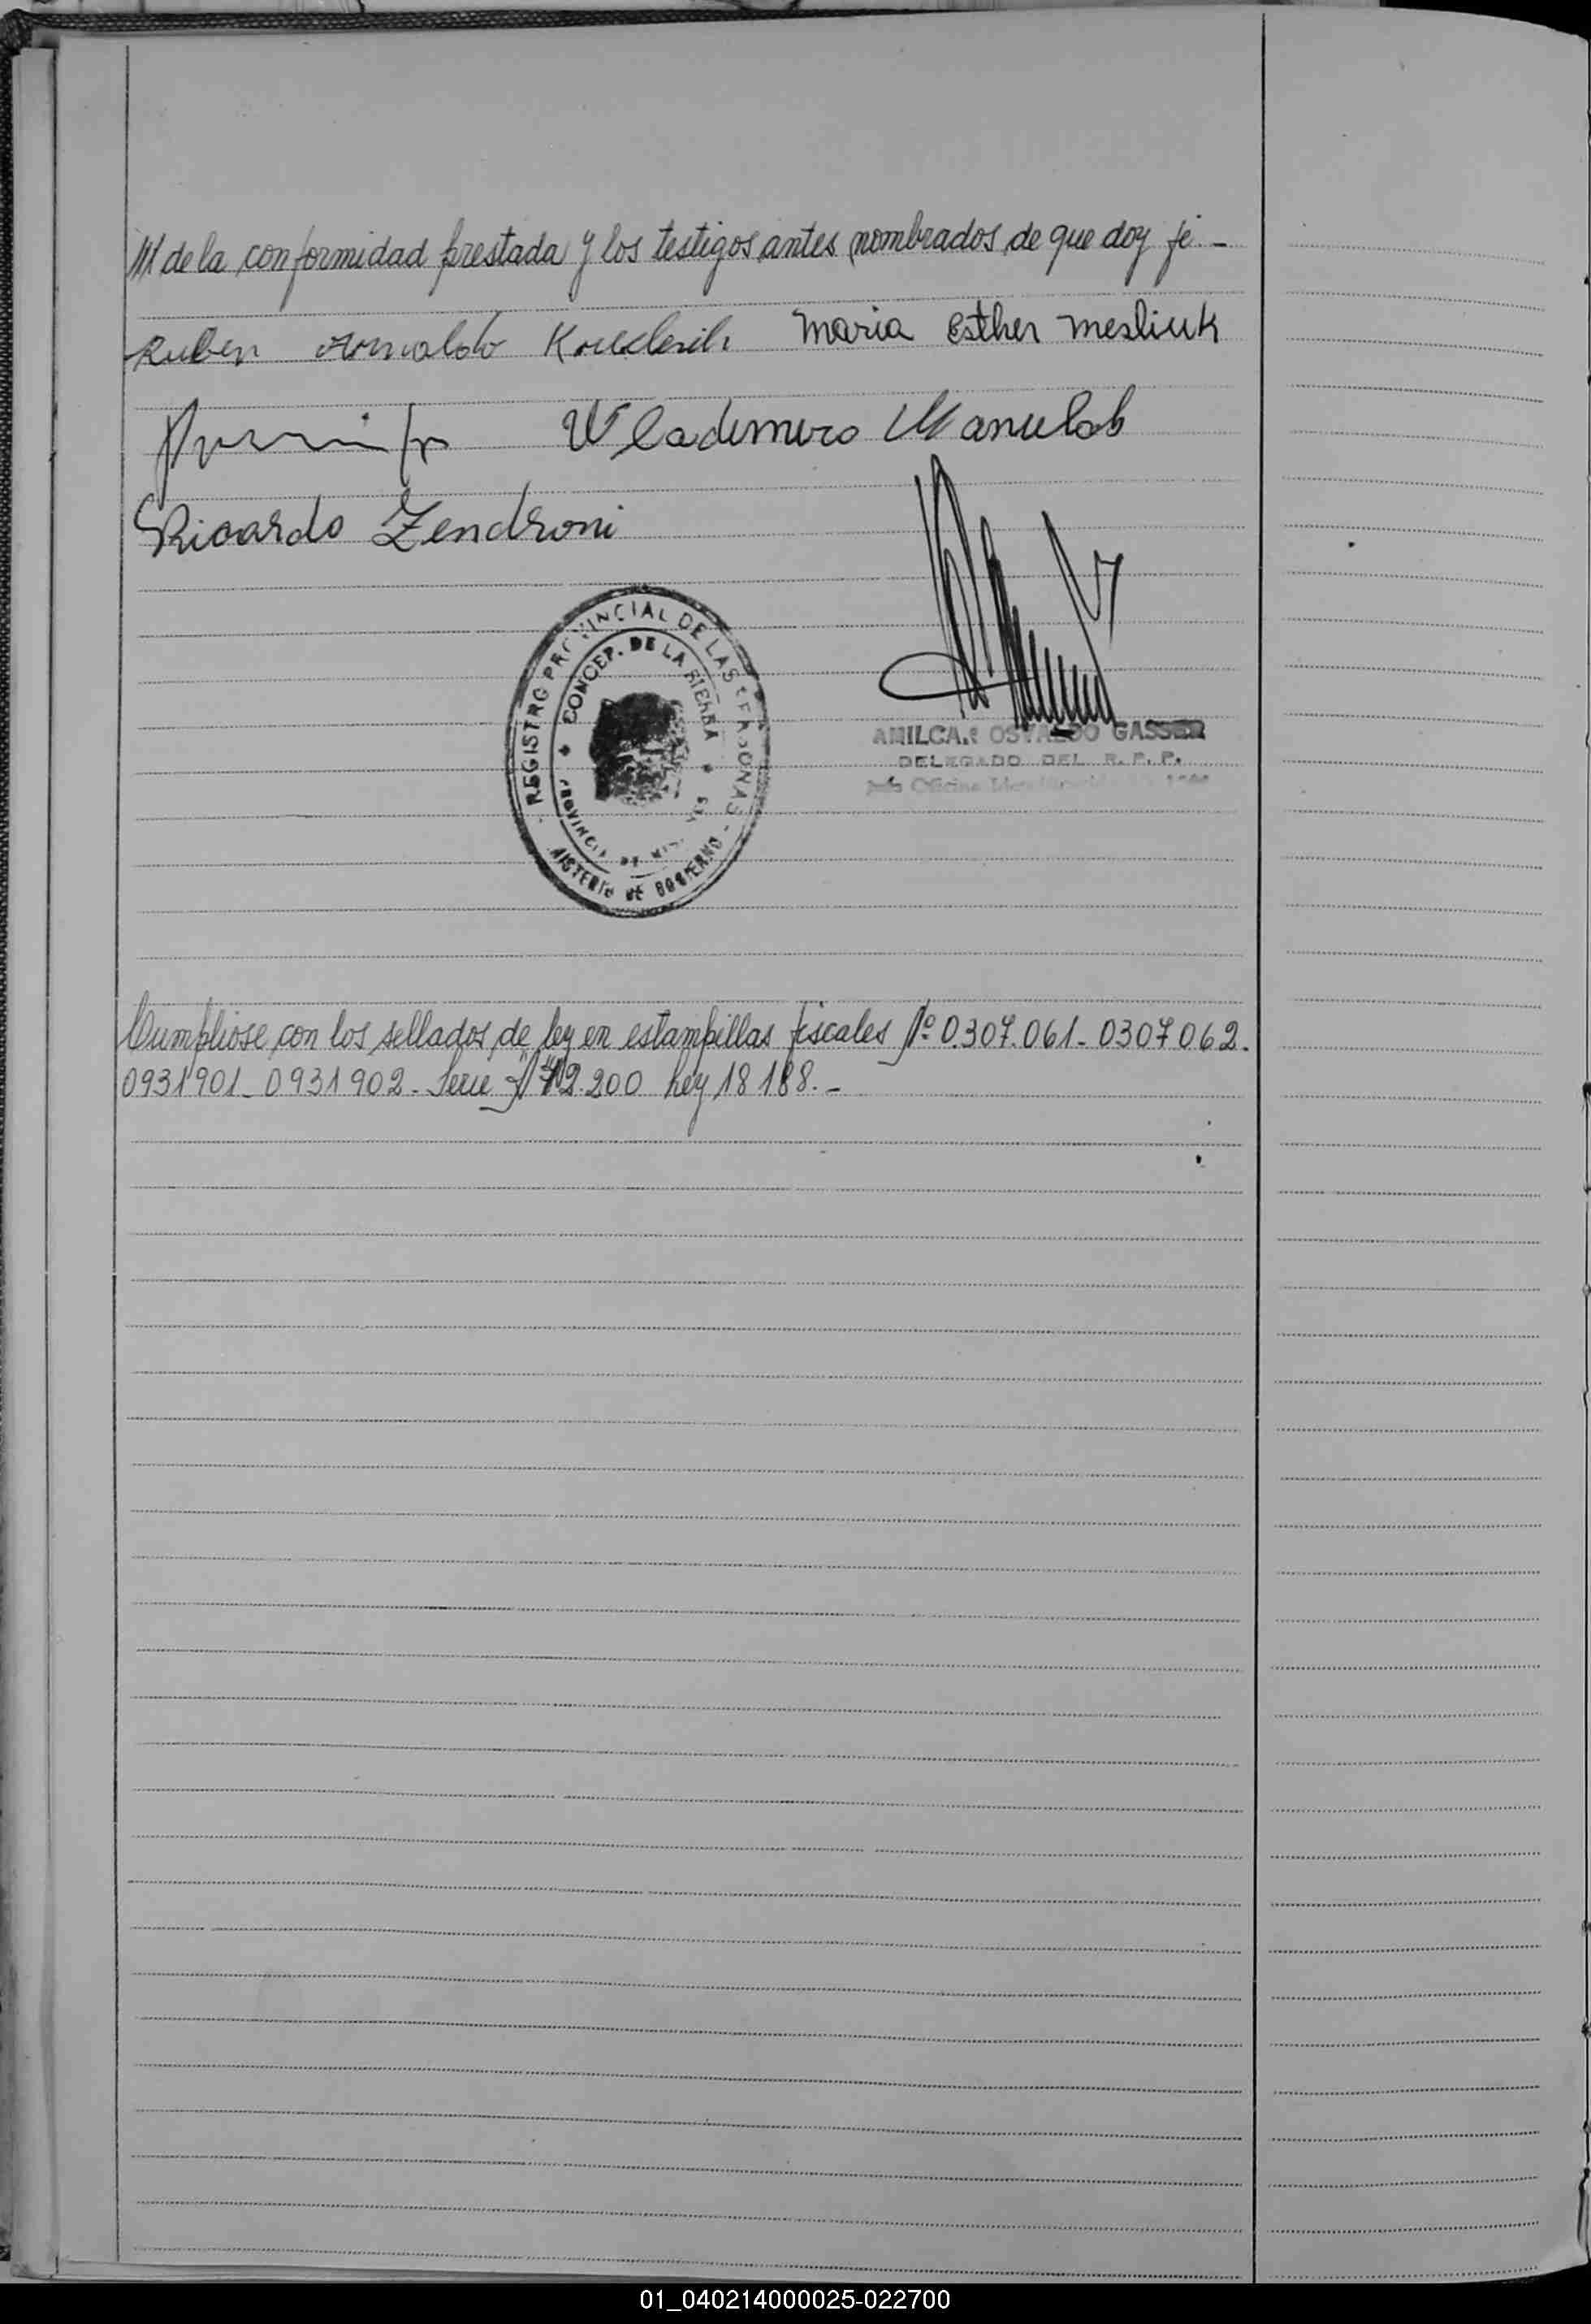 /// de la conformidad prestada y los testigos antes nombrados de que doy fé. -
Ruben Arnaldo Maria Esther Mesliuk
Wlademiro Manulak
Ricardo Zendroni
REGISTRO PROVINCIAL DE LAS PERSONAS
CONCEP. DE LA SIERRA
PROVINCIA DE
DE GOBIERNO
OSVALDO GASSER
DELEGADO DEL R. P. P.
Cumpliose con los sellados de ley en estampillas fiscales Nº 0.307.061 - 0307062.
0931901 - 0931902 - Serie hoy 18 1 88. -
01_040214000025-022700